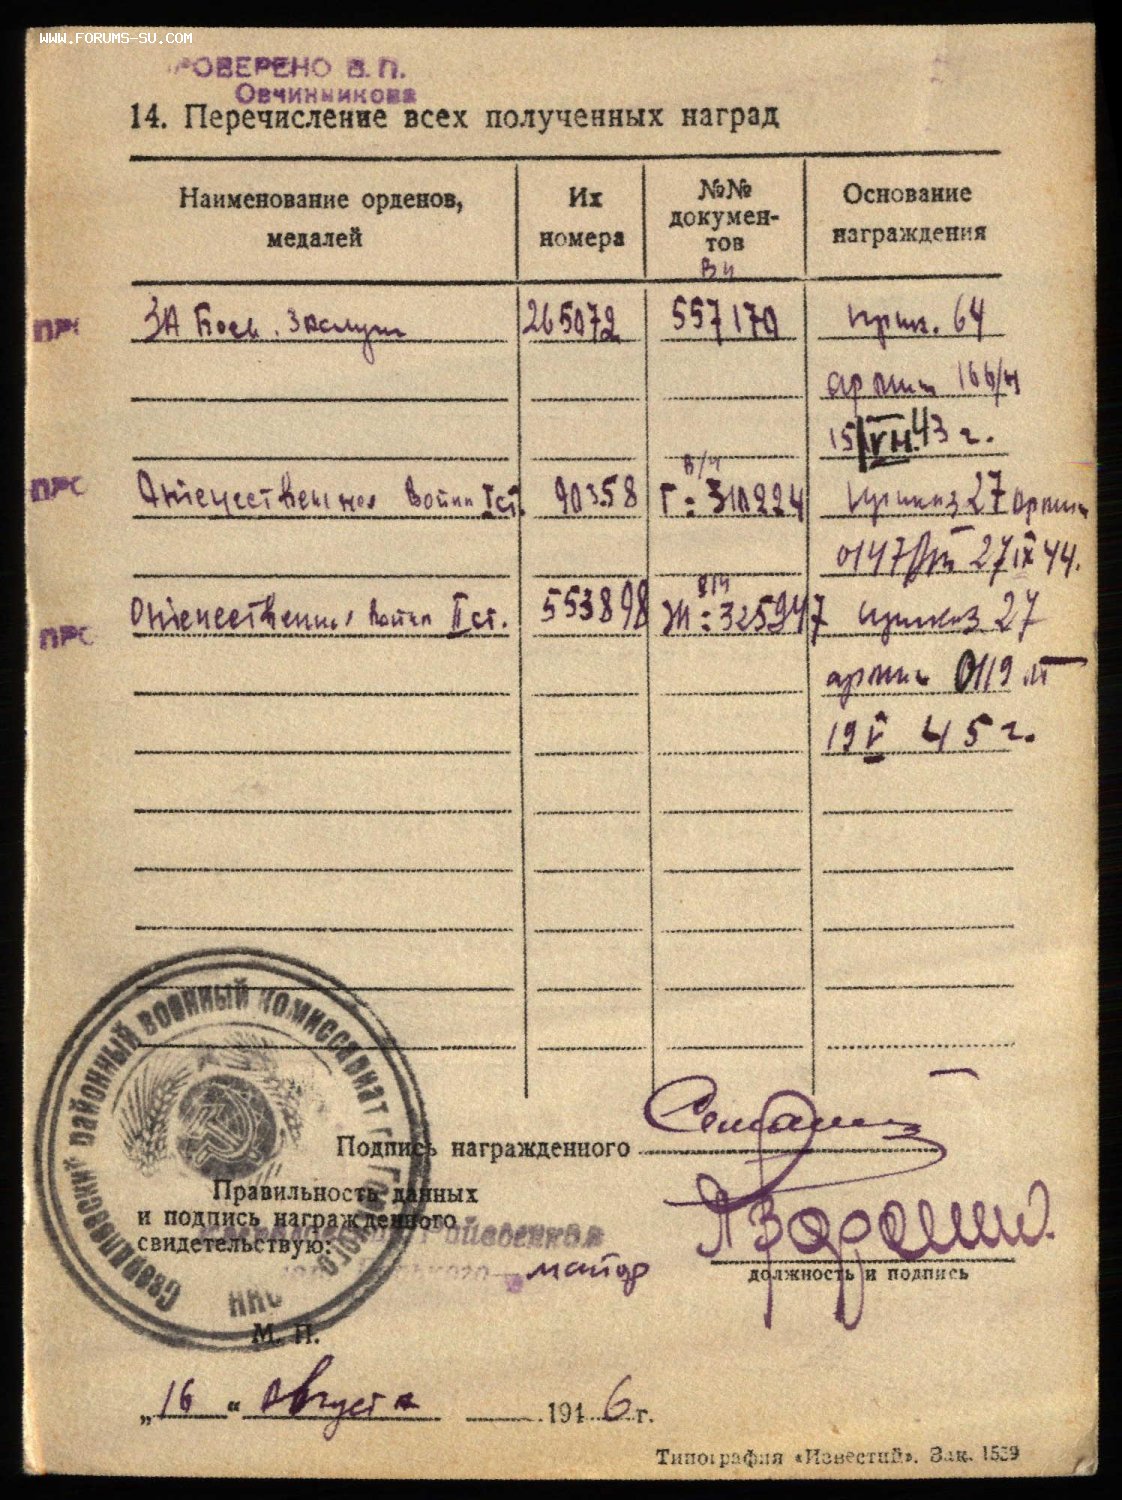 WWW.FORUMS-SU.COM
ПРОВЕРЕНО В. П.
Овчинникова
14. Перечисление всех полученных наград
Наименование орденов, медалей
Их номера
№№ документов
Основание награждения
В/ч
ПРС
ЗА Боев. Заслуги 265072 557170 приказ. 64
армии 166/н
15/VII.43 г.
В/ч
ПРС
Отечественная Война I ст. 90358 Г = 310224 приказ 27 армии
0147 27 IX 44.
В/ч
ПРС
Отечественная Война II ст. 553898 Ж = 325947 приказ 27
армии 0119
19 V 45 г.
Свердловский районный военный комиссариат г. Горького
НКО
Подпись награжденного
Правильность данных
и подпись награжденного
свидетельствую:
Райвоенком
Горького майор
должность и подпись
М. П.
„16“ Августа 1946 г.
Типография «Известий». Зак. 1539